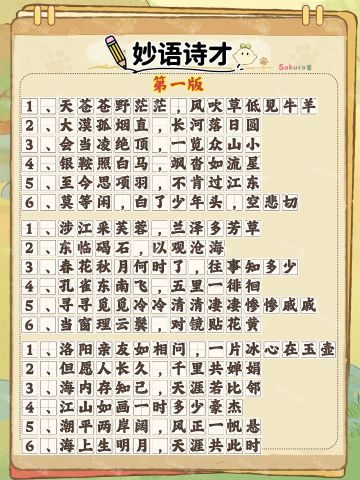 妙语诗才
Sakura酱
第一版
1、天苍苍野茫茫，风吹草低见牛羊
2、大漠孤烟直，长河落日圆
3、会当凌绝顶，一览众山小
4、银鞍照白马，飒沓如流星
5、至今思项羽，不肯过江东
6、莫等闲，白了少年头，空悲切
1、涉江采芙蓉，兰泽多芳草
2、东临碣石，以观沧海
3、春花秋月何时了，往事知多少
4、孔雀东南飞，五里一徘徊
5、寻寻觅觅冷冷清清凄凄惨惨戚戚
6、当窗理云鬓，对镜贴花黄
1、洛阳亲友如相问，一片冰心在玉壶
2、但愿人长久，千里共婵娟
3、海内存知己，天涯若比邻
4、江山如画一时多少豪杰
5、潮平两岸阔，风正一帆悬
6、海上生明月，天涯共此时